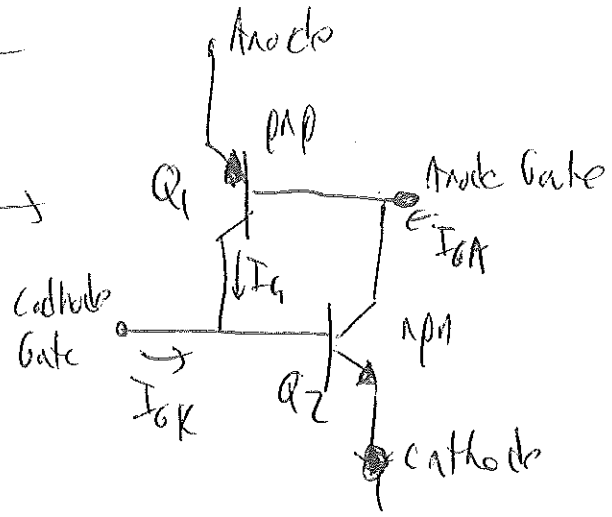 Anode
pnp
Q1
Anode Gate
IGA
IG
Cathode
Gate
IGK
npn
Q2
Cathode